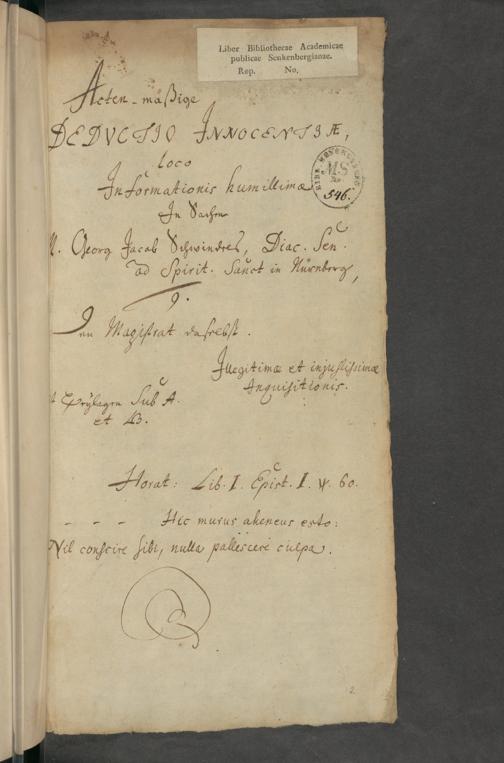 Liber Bibliothecae Academicae
publicae Senkenbergianae.
Rep. No.
Acten-mäßige
DEDVCTIO INNOCENTIÆ,
loco
Informationis humillimæ
In Sachen
M. Georg Jacob Schwindels, Diac. Sen.
ad Spirit. Sanct in Nürnberg,
den Magistrat daselbst.
Illegitimæ et injustissimæ
Inquisitionis.
Beylagen Sub A.
et B.
MS
546.
Horat: Lib. I. Epist. I. v. 60.
- - - Hic murus aheneus esto:
Nil conscire sibi, nulla pallescere culpa.
2